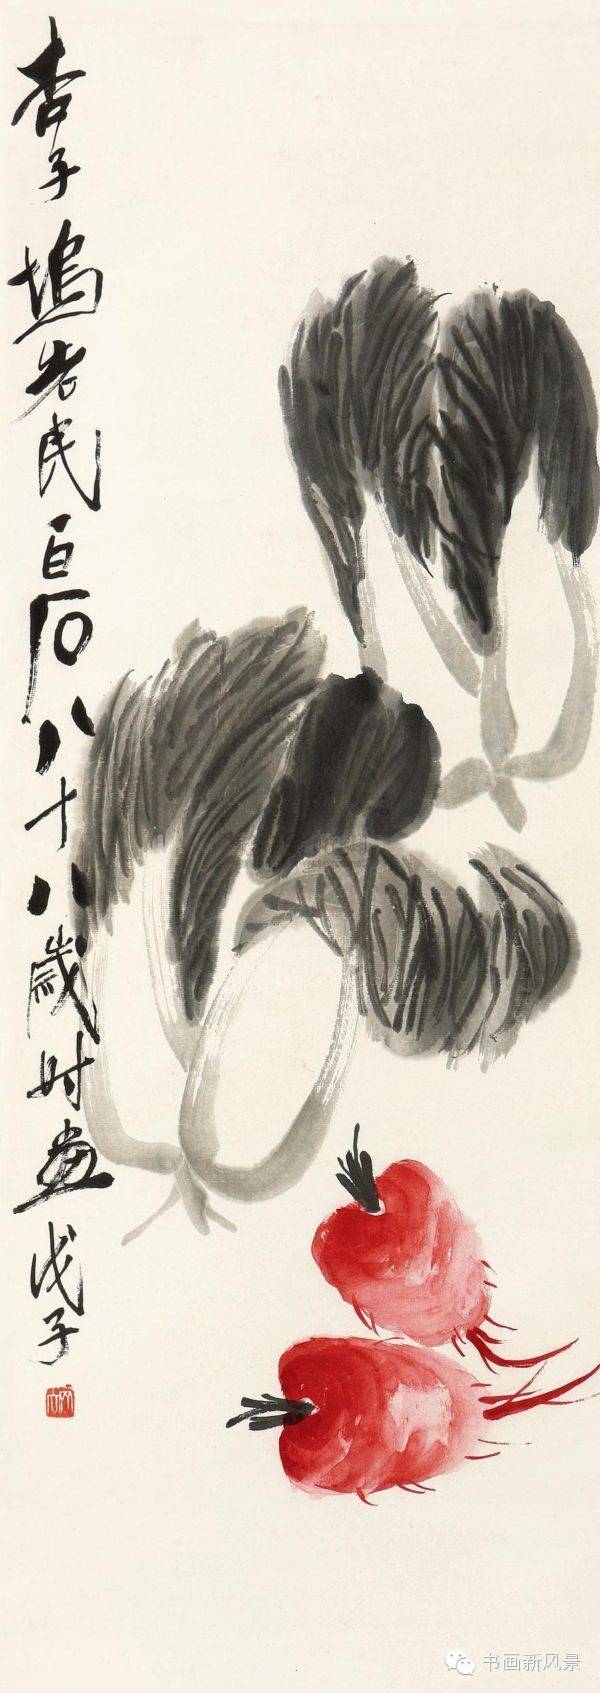 杏子塢老民白石八十八歲时畫戊子
书画新风景